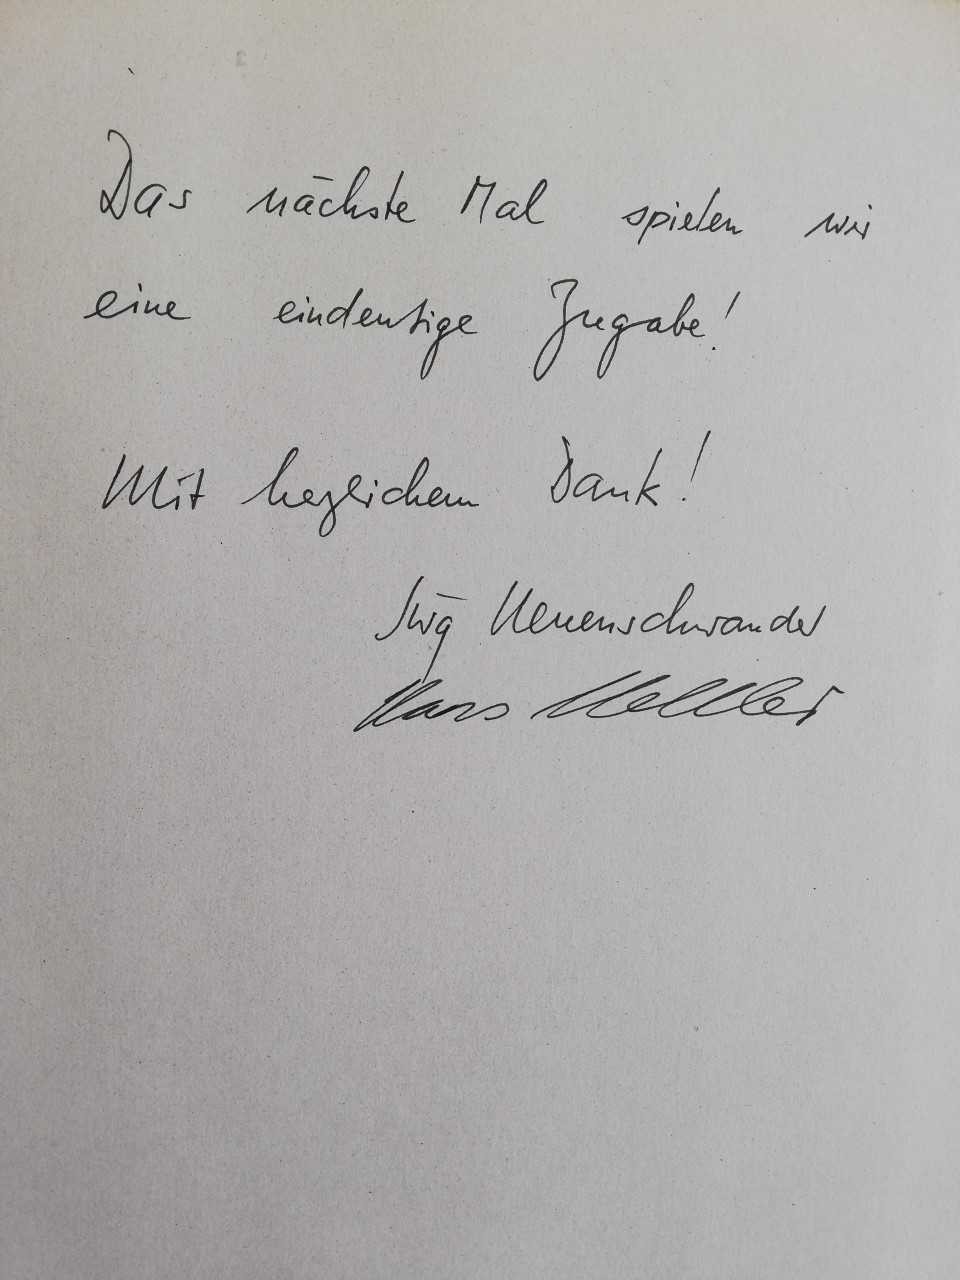 Das nächste Mal spielen wir
eine eindeutige Zugabe!
Mit herzlichem Dank!
Jürg Neuenschwander
Hans